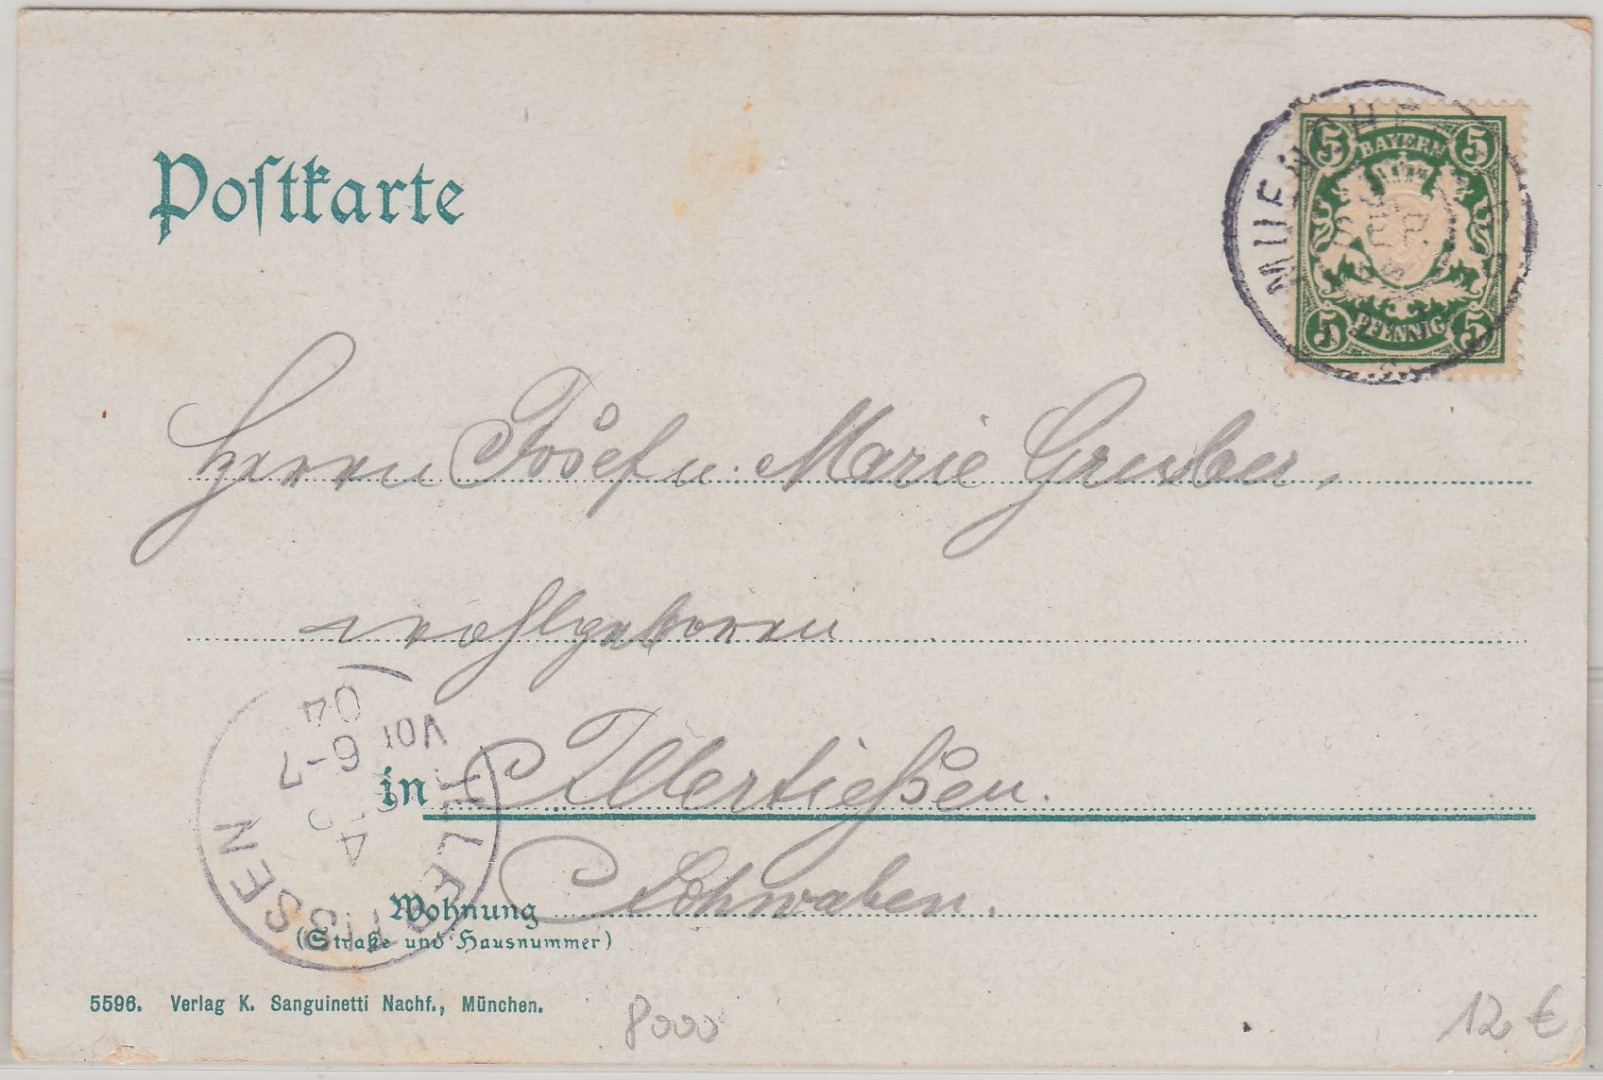 Postkarte
5 BAYERN 5
5 PFENNIG 5
MUENCHEN
3 SEP.
Herrn Josef u. Marie Gruber,
wohlgeboren
in Illertießen.
Schwaben.
Wohnung
(Straße und Hausnummer)
ILLERTISSEN
4
Vor 6-7
04
5596. Verlag K. Sanguinetti Nachf., München.
8000
12 €